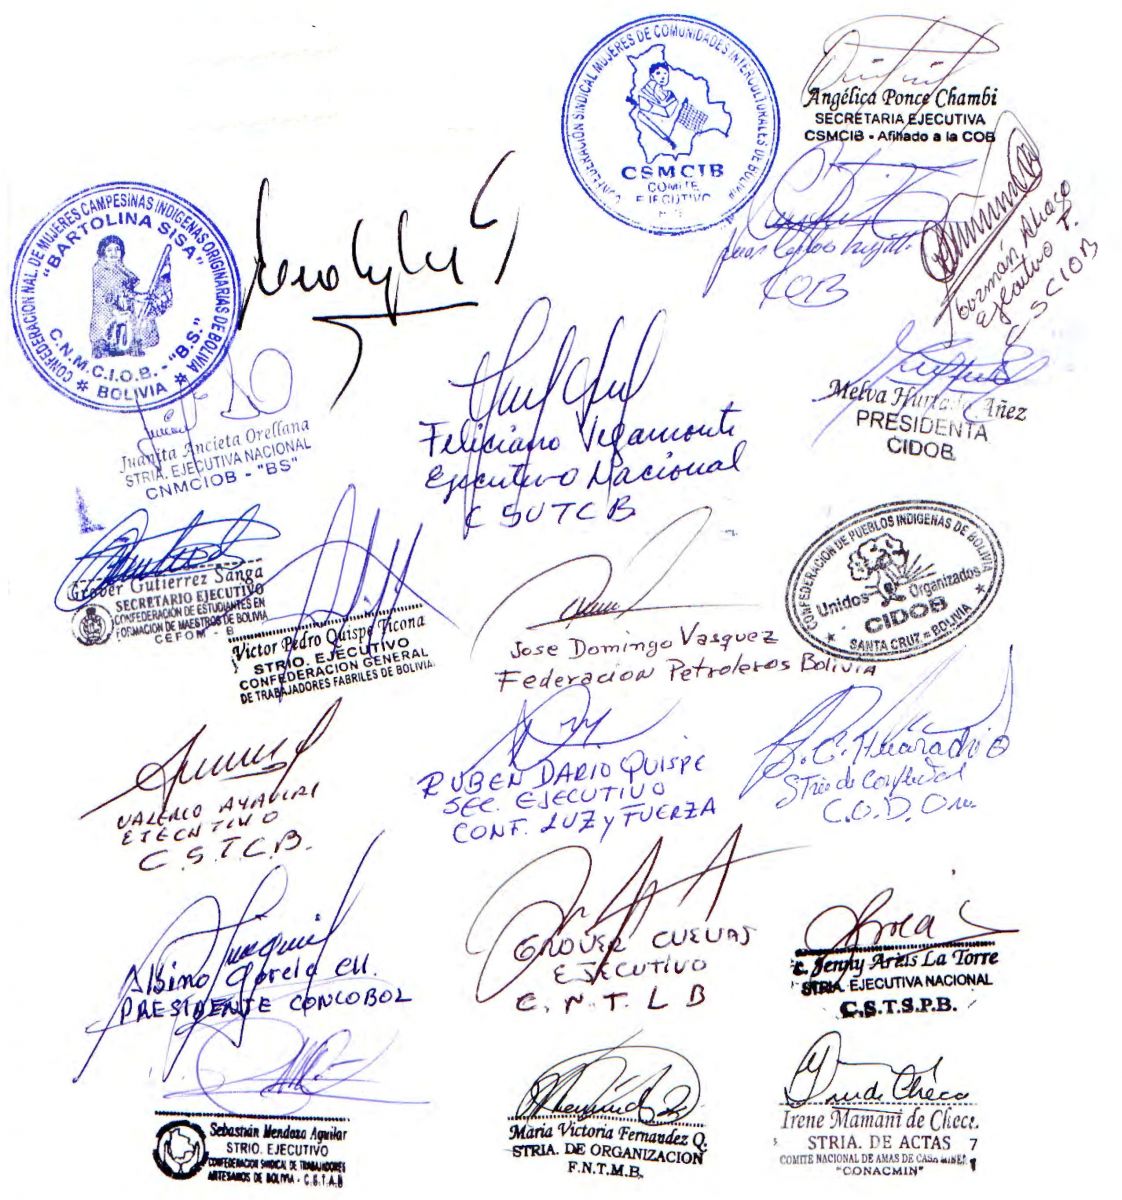 CONFEDERACIÓN SINDICAL MUJERES DE COMUNIDADES INTERCULTURALES DE BOLIVIA
CSMCIB
COMITE
EJECUTIVO
Angélica Ponce Chambi
SECRETARIA EJECUTIVA
CSMCIB - Afiliado a la COB
COB
Ejecutivo
CSCIOB
CONFEDERACION NAL. DE MUJERES CAMPESINAS INDIGENAS ORIGINARIAS DE BOLIVIA
"BARTOLINA SISA"
C.N.M.C.I.O.B. - "B.S."
BOLIVIA
Juanita Ancieta Orellana
STRIA. EJECUTIVA NACIONAL
CNMCIOB - "BS"
Feliciano Vegamonte
Ejecutivo Nacional
CSUTCB
Melva Hurtado Añez
PRESIDENTA
CIDOB
Grover Gutierrez Sanga
SECRETARIO EJECUTIVO
CONFEDERACIÓN DE ESTUDIANTES EN
FORMACIÓN DE MAESTROS DE BOLIVIA
CEFOM - B
Victor Pedro Quispe Ticona
STRIO. EJECUTIVO
CONFEDERACION GENERAL
DE TRABAJADORES FABRILES DE BOLIVIA
Jose Domingo Vasquez
Federacion Petroleros Bolivia
CONFEDERACIÓN DE PUEBLOS INDIGENAS DE BOLIVIA
Unidos Organizados
CIDOB
SANTA CRUZ - BOLIVIA
VALERIO AYAVIRI
EJECUTIVO
C.S.T.C.B.
RUBEN DARIO QUISPE
SEC. EJECUTIVO
CONF. LUZ y FUERZA
Huarachi
C.O.D.
Albino Garcia CH.
PRESIDENTE CONCOBOL
GROVER CUEVAS
EJECUTIVO
C.N.T.L B
Jenny Arzis La Torre
STRIA. EJECUTIVA NACIONAL
C.S.T.S.P.B.
Sebastián Mendoza Aguilar
STRIO. EJECUTIVO
CONFEDERACION SINDICAL DE TRABAJADORES
ARTESANOS DE BOLIVIA - C.S.T.A.B
Maria Victoria Fernandez Q.
STRIA. DE ORGANIZACION
F.N.T.M.B.
Irene Mamani de Checa
STRIA. DE ACTAS
COMITE NACIONAL DE AMAS DE CASA MINERA
"CONACMIN"
7